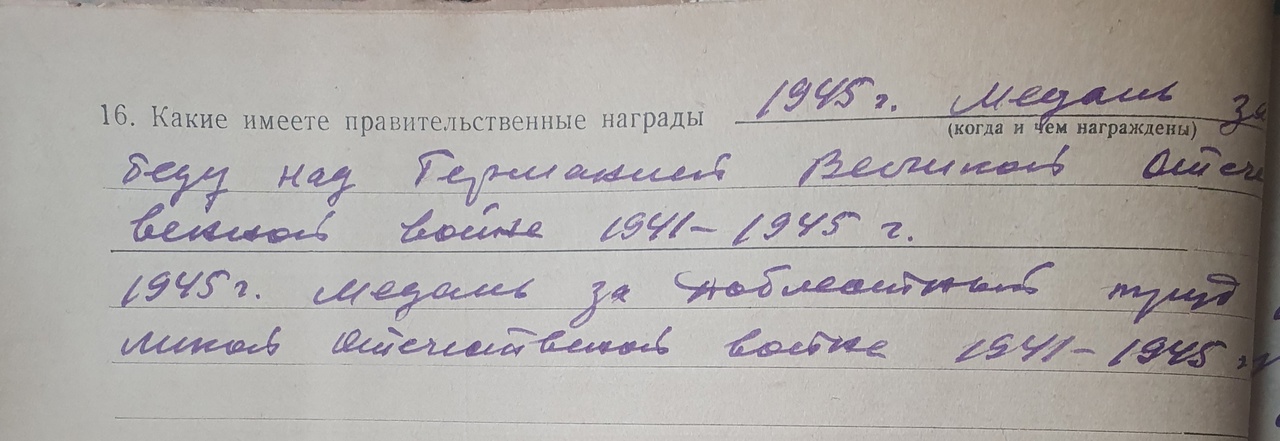 16. Какие имеете правительственные награды 1945 г. Медаль за
(когда и чем награждены)
беду над Германией Великой Отече
венной войне 1941-1945 г.
1945 г. медаль за доблестный труд
ликой Отечественной войне 1941-1945 г.